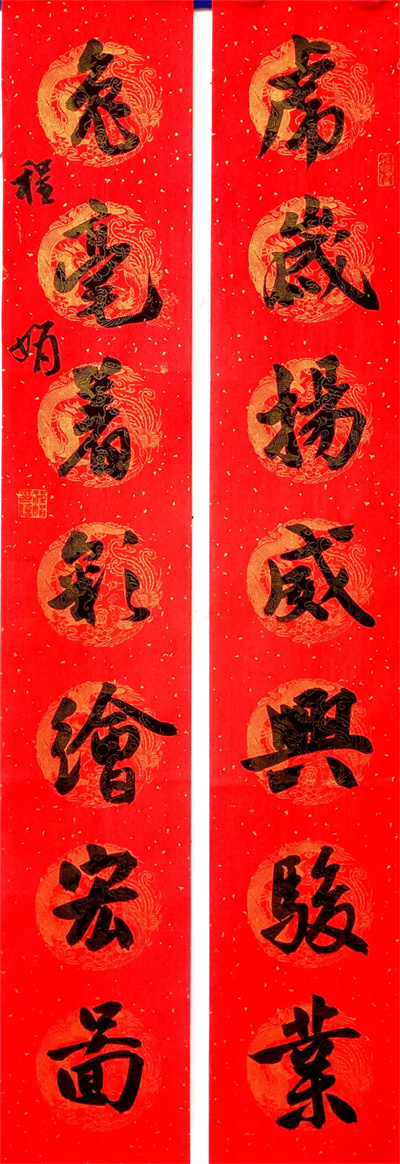 虎歲揚威興駿業
兔毫着彩繪宏圖
程娟